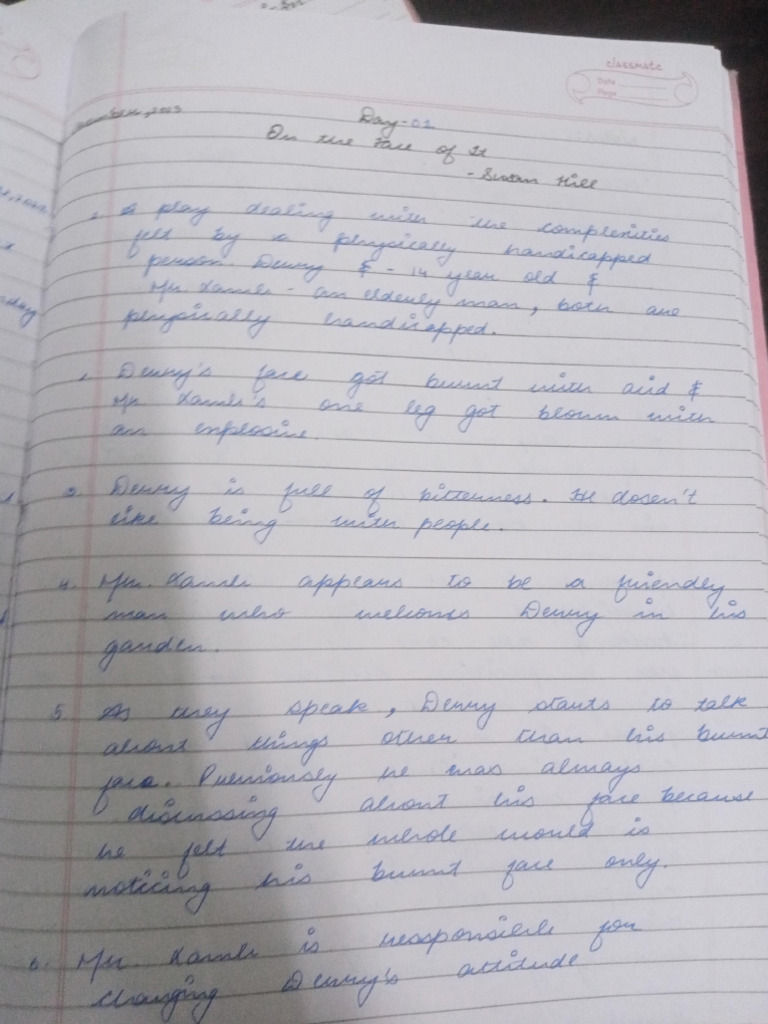 classmate
Date
Page
Day-01
On the Face of It
- Susan Hill
A play dealing with the complexities
felt by a physically handicapped
person. Derry & - 14 year old &
Mr. Lamb - an elderly man, both are
physically handicapped.
Derry's face got burnt with acid &
Mr Lamb's one leg got blown with
an explosive.
3. Derry is full of bitterness. He dosen't
like being with people.
4. Mr. Lamb appears to be a friendly
man who welcoms Derry in his
garden.
5 As they speak, Derry starts to talk
about things other than his burnt
face. Previously he was always
discussing about his face because
he felt the whole world is
noticing his burnt face only.
6. Mr. Lamb is responsible for
changing Derry's attitude